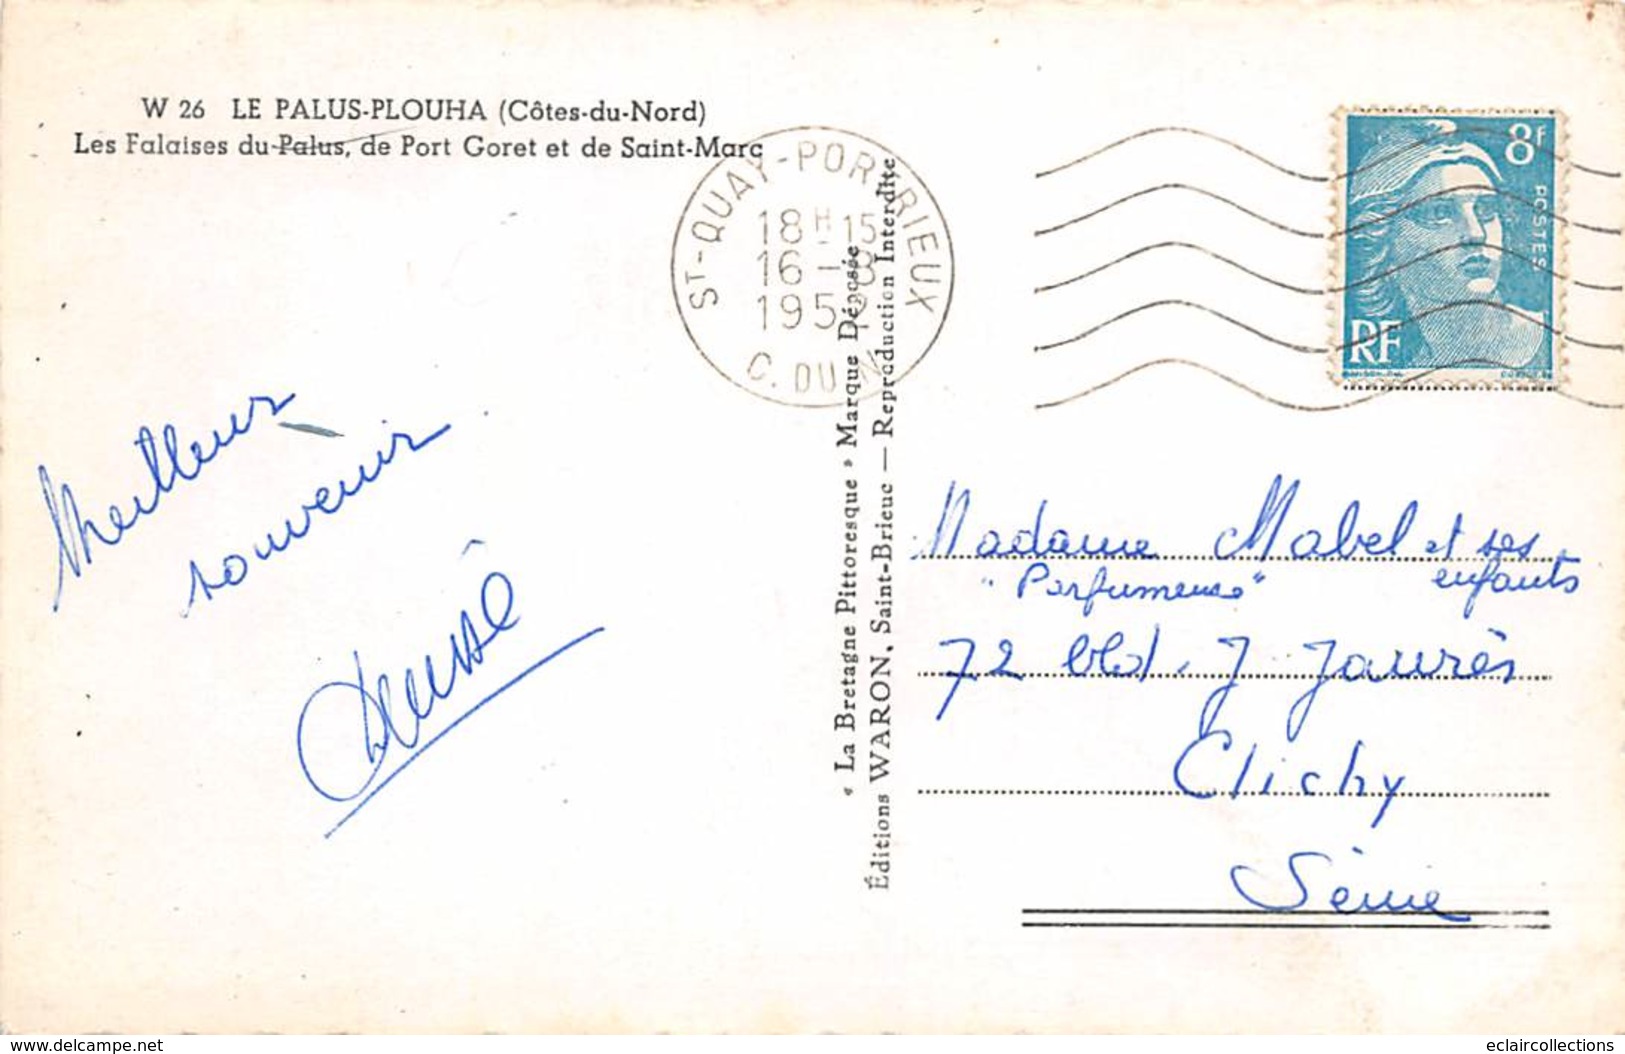 W 26 LE PALUS-PLOUHA (Côtes-du-Nord)
Les Falaises du Palus, de Port Goret et de Saint-Marc
ST-QUAY-PORTRIEUX
18H-15
16-8
1952
C. DU N
8f
POSTES
RF
Meilleur
souvenir
« La Bretagne Pittoresque » Marque Déposée
Éditions WARON, Saint-Brieuc — Reproduction Interdite
Madame Mabel et ses
"Parfumeuse" enfants
72 bld. J Jaurès
Clichy
Seine
www.delcampe.net
eclaircollections